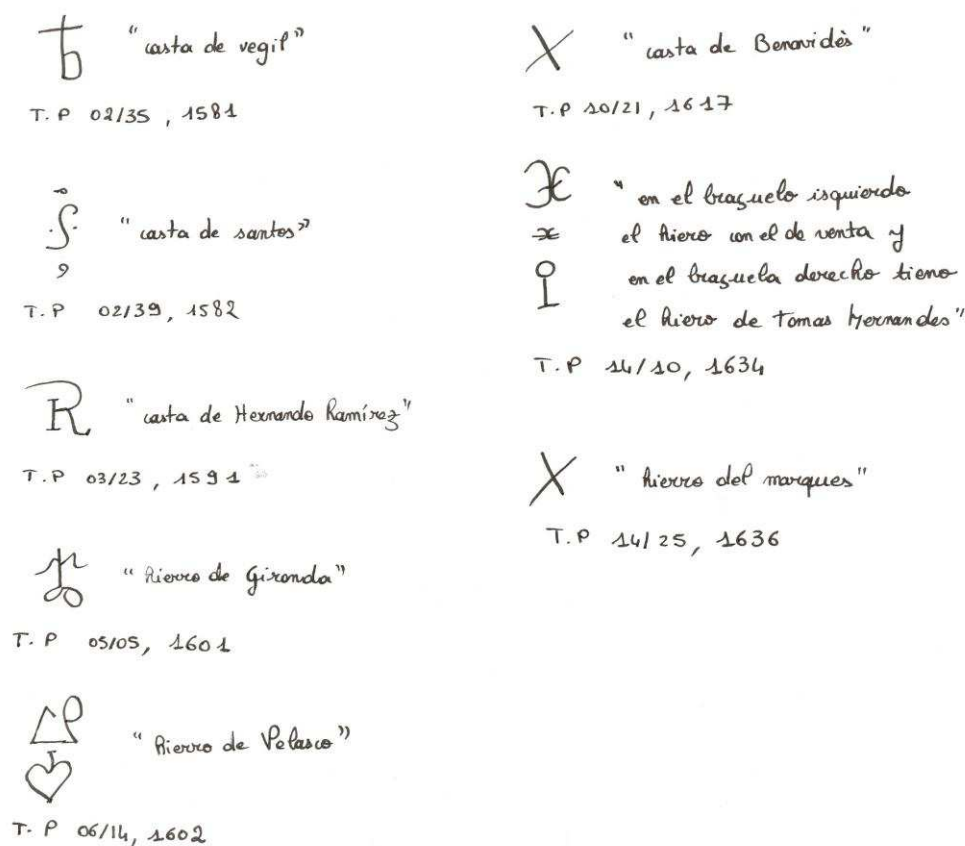 "casta de vegil"
T.P 02/35, 1581
"casta de santos"
T.P 02/39, 1582
R "casta de Hernando Ramírez"
T.P 03/23, 1591
"hierro de Gironda"
T.P 05/05, 1601
"hierro de Velasco"
T.P 06/14, 1602
X "casta de Benavidès"
T.P 10/21, 1617
"en el braguelo isquierdo
el hiero con el de venta y
en el braguela derecho tieno
el hiero de Tomas Hernandes"
T.P 14/10, 1634
X "hierro del marques"
T.P 14/25, 1636